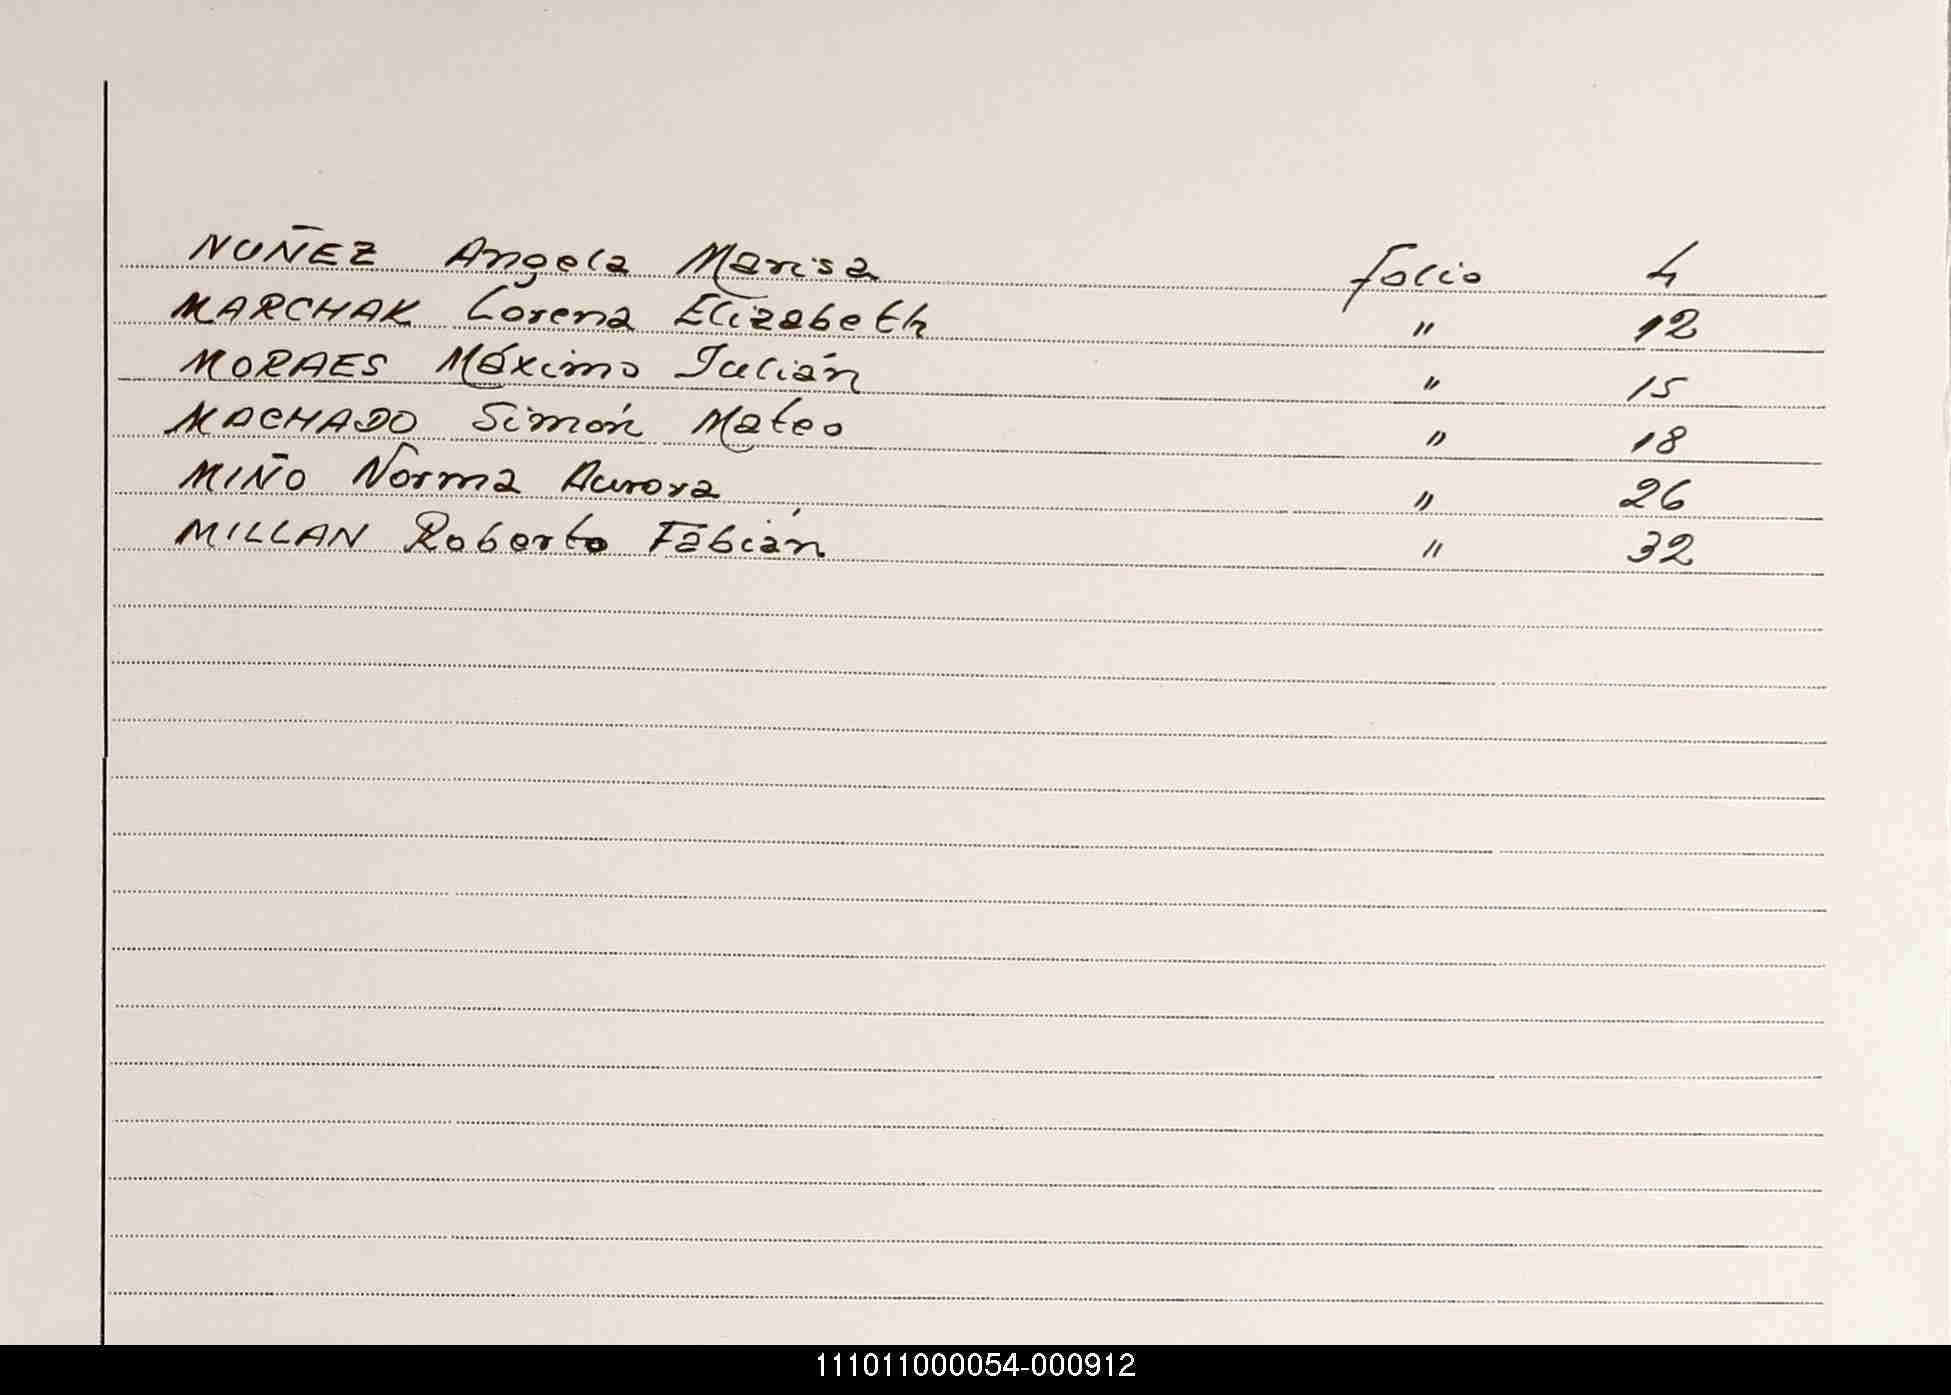 NUÑEZ Angela Marisa folio 4
MARCHAK Lorena Elizabeth " 12
MORAES Máximo Julián " 15
MACHADO Simón Mateo " 18
MIÑO Norma Aurora " 26
MILLAN Roberto Fabián " 32
111011000054-000912